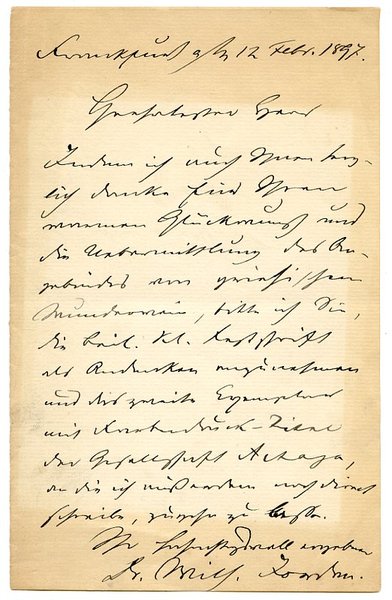 Frankfurt a/M 12 Febr. 1897.
Geehrtester Herr
Indem ich auch Ihnen herz-
lich danke für Ihren
warmen Glückwunsch und
die Uebermittlung des An-
gebindes von griechischem
Wunderwein, bitte ich Sie,
die beil. kl. Festschrift
als Andenken anzunehmen
und das zweite Exemplar
mit Farbendruck-Titel
der Gesellschaft Achaja,
an die ich außerdem noch direct
schreibe, zugehn zu lassen.
Ihr hochachtungsvoll ergebener
Dr. Wilh. Jordan.